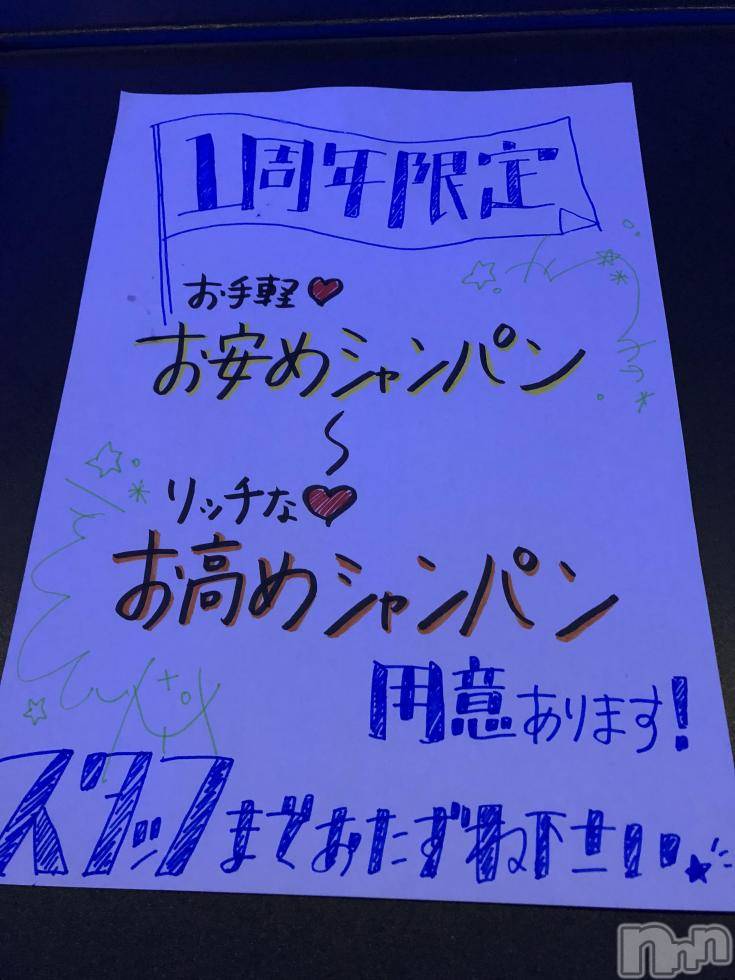 1周年限定
お手軽♥
お安めシャンパン
〜
リッチな♥
お高めシャンパン
用意あります!
スタッフまでおたずね下さい★